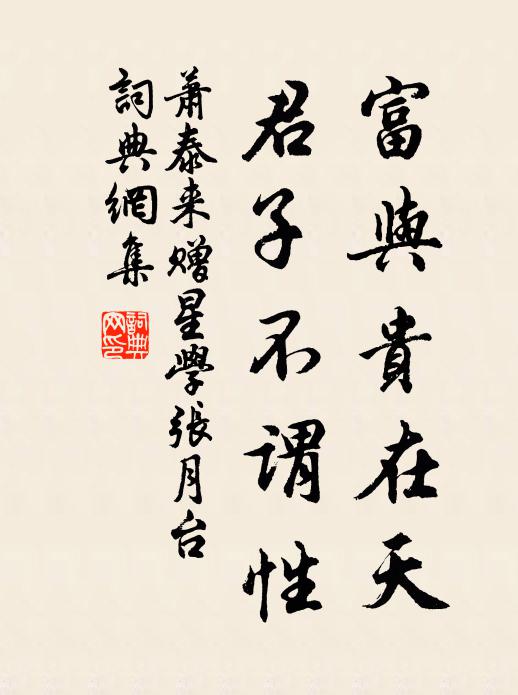 富與貴在天
君子不謂性
蕭泰来赠星學張月台
詞典網集
詞典
网印